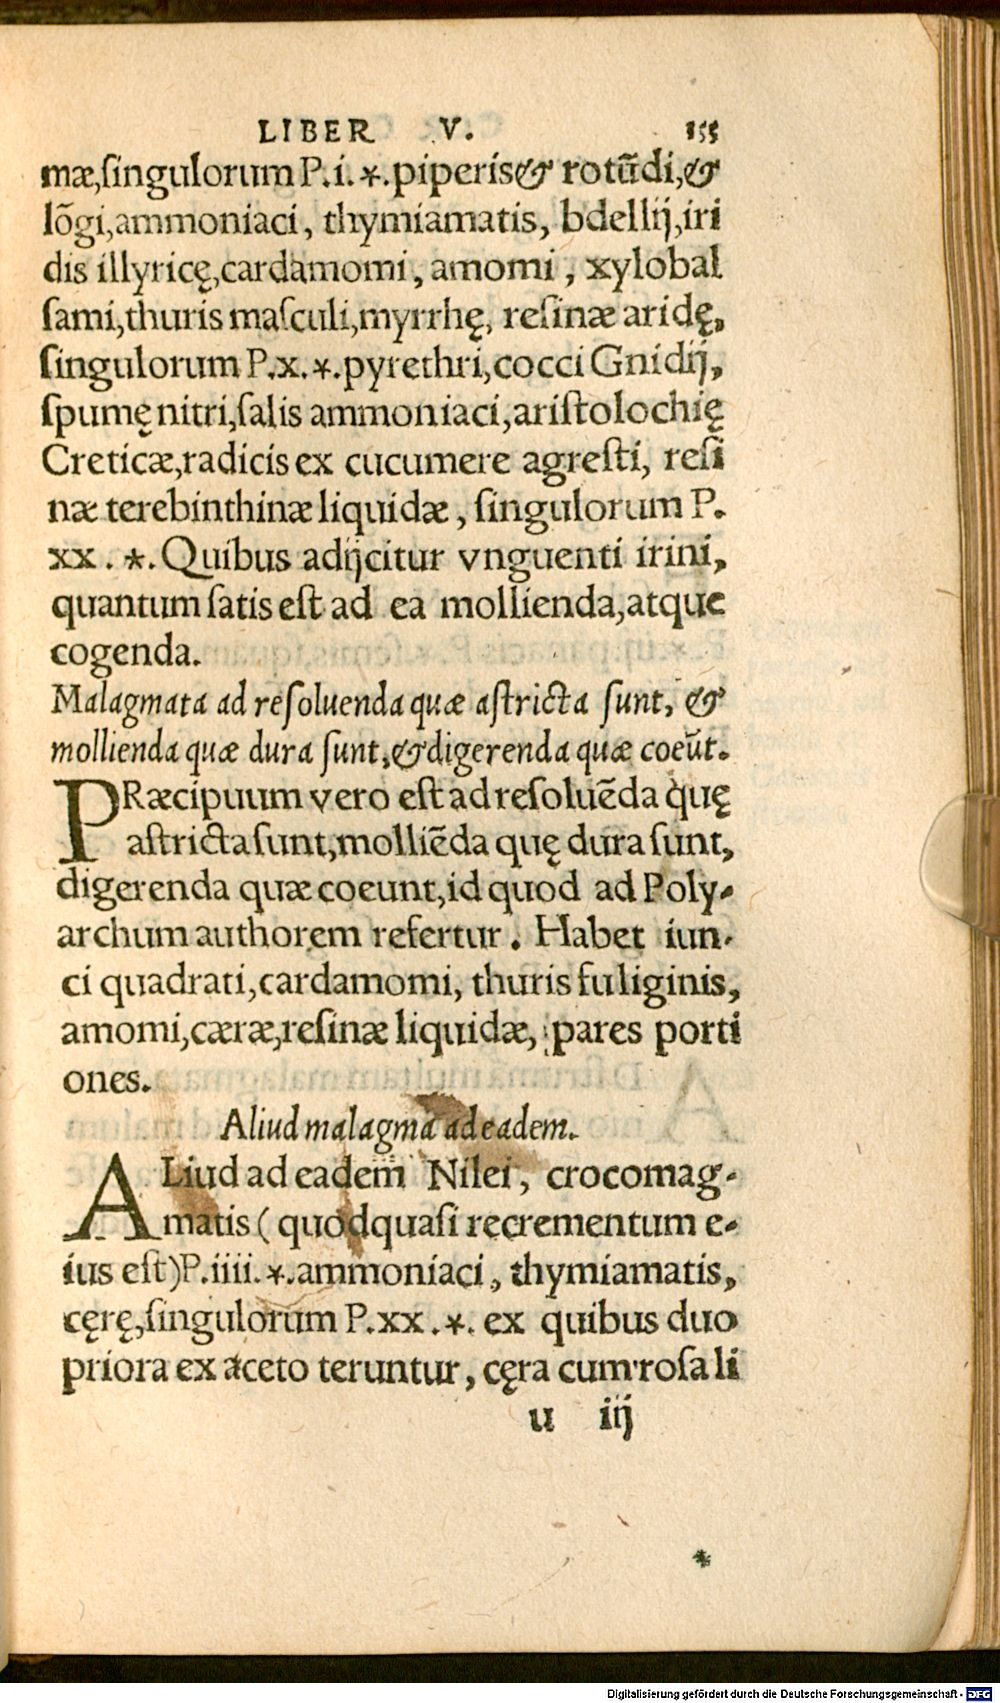 LIBER V. 155
mæ,ſingulorum P.i.*.piperis& rotūdi,&
lōgi,ammoniaci, thymiamatis, bdellij,iri
dis illyricę,cardamomi, amomi, xylobal
ſami,thuris maſculi,myrrhę, reſinæ aridę,
ſingulorum P.x.*.pyrethri,cocci Gnidij,
ſpumę nitri,ſalis ammoniaci,ariſtolochię
Creticæ,radicis ex cucumere agreſti, reſi
næ terebinthinæ liquidæ, ſingulorum P.
xx.*. Quibus adijcitur vnguenti irini,
quantum ſatis eſt ad ea mollienda,atque
cogenda.
Malagmata ad reſoluenda quæ aſtricta ſunt, &
mollienda quæ dura ſunt,& digerenda quæ coeūt.
PRæcipuum vero eſt ad reſoluēda quę
aſtricta ſunt,molliēda quę dura ſunt,
digerenda quæ coeunt,id quod ad Poly-
archum authorem refertur. Habet iun-
ci quadrati,cardamomi, thuris fuliginis,
amomi,cæræ,reſinæ liquidæ, pares porti
ones.
Aliud malagma ad eadem.
ALiud ad eadem Nilei, crocomag-
matis (quod quaſi recrementum e-
ius eſt)P.iiii.*.ammoniaci, thymiamatis,
cęrę,ſingulorum P.xx.*. ex quibus duo
priora ex aceto teruntur, cęra cum roſa li
u iij
*
Digitalisierung gefördert durch die Deutsche Forschungsgemeinschaft - DFG